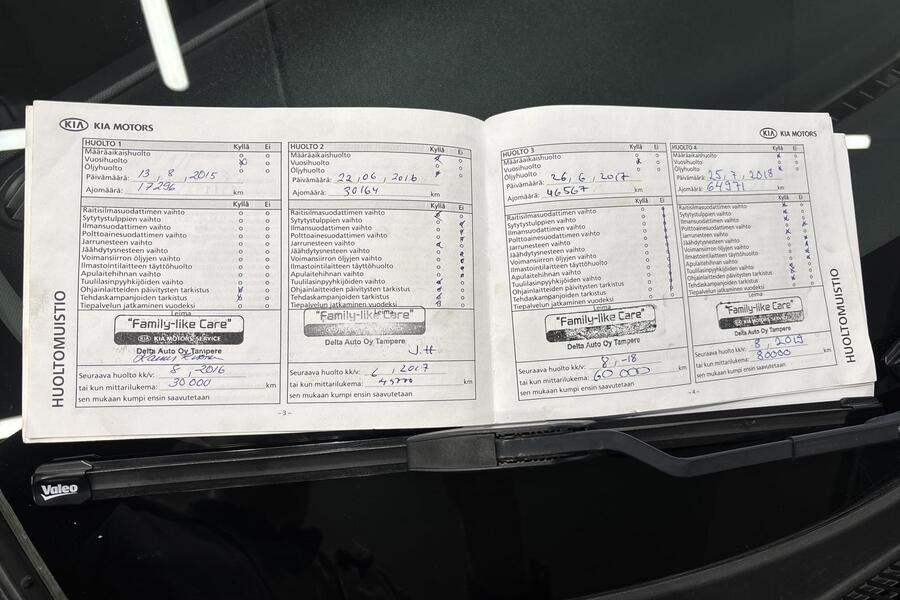 KIA KIA MOTORS
HUOLTOMUISTIO
HUOLTO 1 Kyllä Ei
Määräaikaishuolto
Vuosihuolto
Öljyhuolto
Päivämäärä: 13, 8, 2015
Ajomäärä: 17296 km
Raitisilmasuodattimen vaihto
Sytytystulppien vaihto
Ilmansuodattimen vaihto
Polttoainesuodattimen vaihto
Jarrunesteen vaihto
Jäähdytysnesteen vaihto
Voimansiirron öljyjen vaihto
Ilmastointilaitteen täyttöhuolto
Apulaitehihnan vaihto
Tuulilasinpyyhkijöiden vaihto
Ohjainlaitteiden päivitysten tarkistus
Tehdaskampanjoiden tarkistus
Tiepalvelun jatkaminen vuodeksi
Leima
"Family-like Care"
KIA MOTORS SERVICE
Delta Auto Oy Tampere
Seuraava huolto kk/v: 8, 2016
tai kun mittarilukema: 30 000 km
sen mukaan kumpi ensin saavutetaan
HUOLTO 2 Kyllä Ei
Määräaikaishuolto
Vuosihuolto
Öljyhuolto
Päivämäärä: 22, 06, 2016
Ajomäärä: 30164 km
Raitisilmasuodattimen vaihto
Sytytystulppien vaihto
Ilmansuodattimen vaihto
Polttoainesuodattimen vaihto
Jarrunesteen vaihto
Jäähdytysnesteen vaihto
Voimansiirron öljyjen vaihto
Ilmastointilaitteen täyttöhuolto
Apulaitehihnan vaihto
Tuulilasinpyyhkijöiden vaihto
Ohjainlaitteiden päivitysten tarkistus
Tehdaskampanjoiden tarkistus
Tiepalvelun jatkaminen vuodeksi
Leima
"Family-like Care"
Delta Auto Oy Tampere
J.H
Seuraava huolto kk/v: 6, 2017
tai kun mittarilukema: km
sen mukaan kumpi ensin saavutetaan
-3-
KIA KIA MOTORS
HUOLTO 3 Kyllä Ei
Määräaikaishuolto
Vuosihuolto
Öljyhuolto
Päivämäärä: 26, 6, 2017
Ajomäärä: 46567 km
Raitisilmasuodattimen vaihto
Sytytystulppien vaihto
Ilmansuodattimen vaihto
Polttoainesuodattimen vaihto
Jarrunesteen vaihto
Jäähdytysnesteen vaihto
Voimansiirron öljyjen vaihto
Ilmastointilaitteen täyttöhuolto
Apulaitehihnan vaihto
Tuulilasinpyyhkijöiden vaihto
Ohjainlaitteiden päivitysten tarkistus
Tehdaskampanjoiden tarkistus
Tiepalvelun jatkaminen vuodeksi
Leima
"Family-like Care"
Delta Auto Oy Tampere
Seuraava huolto kk/v: 8, -18
tai kun mittarilukema: 60 000 km
sen mukaan kumpi ensin saavutetaan
HUOLTO 4 Kyllä Ei
Määräaikaishuolto
Vuosihuolto
Öljyhuolto
Päivämäärä: 25, 7, 2018
Ajomäärä: 64971 km
Raitisilmasuodattimen vaihto
Sytytystulppien vaihto
Ilmansuodattimen vaihto
Polttoainesuodattimen vaihto
Jarrunesteen vaihto
Jäähdytysnesteen vaihto
Voimansiirron öljyjen vaihto
Ilmastointilaitteen täyttöhuolto
Apulaitehihnan vaihto
Tuulilasinpyyhkijöiden vaihto
Ohjainlaitteiden päivitysten tarkistus
Tehdaskampanjoiden tarkistus
Tiepalvelun jatkaminen vuodeksi
Leima
"Family-like Care"
KIA MOTORS SERVICE
Delta Auto Oy Tampere
Seuraava huolto kk/v: 8, 2019
tai kun mittarilukema: 80000 km
sen mukaan kumpi ensin saavutetaan
-4-
HUOLTOMUISTIO
Valeo